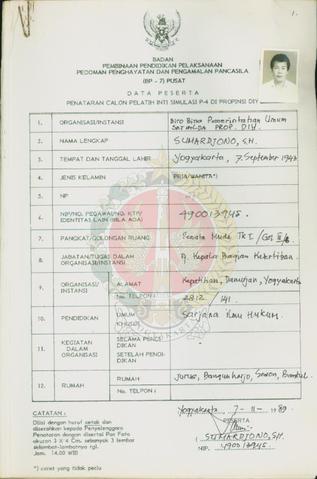 1.
BADAN
PEMBINAAN PENDIDIKAN PELAKSANAAN
PEDOMAN PENGHAYATAN DAN PENGAMALAN PANCASILA
(BP - 7) PUSAT
DATA PESERTA
PENATARAN CALON PELATIH INTI SIMULASI P-4 DI PROPINSI DIY
1. ORGANISASI/INSTANSI Biro Bina Pemerintahan Umum
SETWILDA PROP. DIY.
2. NAMA LENGKAP SUMARDJONO, S.H.
3. TEMPAT DAN TANGGAL LAHIR Yogyakarta, 7 September 1947
4. JENIS KELAMIN PRIA/WANITA*)
5. NP
6. NIP/NO. PEGAWAI/NO. KTP/
IDENTITAS LAIN (BILA ADA) 490013945.
7. PANGKAT/GOLONGAN RUANG Penata Muda Tk I /Gol III/b
8. JABATAN/TUGAS DALAM
ORGANISASI/INSTANSI Kepala Bagian Ketertiban.
9. ORGANISASI/
INSTANSI ALAMAT Kepatihan, Danurejan, Yogyakarta
No. TELPON : 2812 / 141.
10. PENDIDIKAN UMUM Sarjana Ilmu Hukum.
KHUSUS
11. KEGIATAN
DALAM
ORGANISASI SELAMA PENDI-
DIKAN
SETELAH PENDI-
DIKAN
12. RUMAH RUMAH Bangunharjo, Sewon, Bantul.
No. TELPON :
Yogyakarta 7-II-1989
PESERTA
( SUMARDJONO, S.H. )
NIP. 490013945.
CATATAN :
Diisi dengan huruf cetak dan
diserahkan kepada Penyelenggara
Penataran dengan disertai Pas Foto
ukuran 3 x 4 Cm. sebanyak 3 lembar
selambat-lambatnya tgl.
Jam. 14.00 WIB
*) coret yang tidak perlu